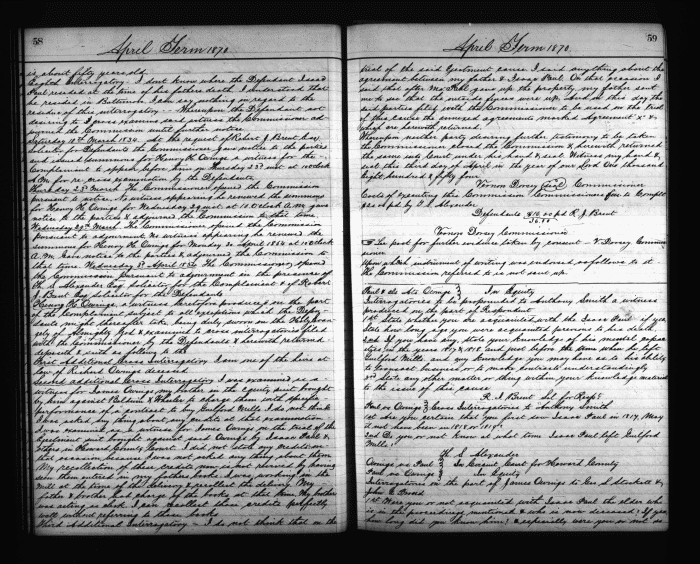 58
April Term 1870.
is about fifty years old
I don't know where the Defendant Isaac
Paul resided at the time of his fathers death I understood that
he resided in Baltimore. I can say nothing in regard to the
residue of the interrogatory - Whereupon the Defendants not
desiring to examine said witness the Commissioner ad-
journed the Commission until further notice
Saturday 18th March 1854. At the request of Robert J Brent his
Solicitor for Defendants the Commissioner gave notice to the parties
and issued summons for Henry H. Owings a witness for the
Complainant to appear before him on Thursday 23d inst at 10 Oclock
A.M. for re examination by the Defendants
Thursday 23d March The Commissioner opened the Commission
pursuant to notice. No witness appearing he renewed the summons
for H. Owings for Wednesday 29 inst at 10 Oclock A.M. gave
notice to the parties & adjourned the Commission to that time.
Wednesday 29th March. The Commissioner opened the Commission
pursuant to adjournment no witness appearing he renewed the
summons for Henry H. Owings for Monday 3d April 1854 at 10 Oclock
A.M. Gave notice to the parties & adjourned the Commission to
that time. April 1854 The Commissioner opened
the Commission pursuant to adjournment in the presence of
Th S Alexander Esq. Solicitor for the Complainant & of Robert
J Brent Esq Solicitor for the Defendants
Henry H. Owings a witness heretofore produced on the part
of the Complainant subject to all exceptions which the Defen-
dants might thereafter take being duly sworn on the Holy Evan-
gely of Almighty God & examined to cross interrogatories filed
with the Commissioner by the Defendants & herewith returned
deposeth & saith as follows to the
First Additional Cross Interrogatory I am one of the heirs at
law of Richard Owings deceased
Second additional Cross Interrogatory I was examined as a
witness for James Owings in the Equity suit brought
by him against Baldwin & Wheeler to charge them with specific
performance of a contract to buy Guilford Mills. I do not think
I was asked any thing about any credits at that examination
I was examined as a witness for James Owings on the trial of the
Ejectment suit brought against said Owings by Isaac Paul &
others in Howard County Court. I did not state any credits on
that occasion because I was not asked any thing about them
My recollection of these credits now is not derived by having
seen them entered in my fathers books. I was working in the
Mill at the time of the delivery & recollect the delivery. My
father & brother had charge of the books at this time. My brother
was acting as clerk. I can recollect these credits perfectly
well without referring to those books
Third Additional Interrogatory - I do not think that on the
59
April Term 1870.
trial of the said Ejectment cause I said anything about the
agreement between my father & Isaac Paul. On that occasion I
said that after Mr Pell gave up the property my father sent
me to see that the outside fences were up. And on this day the
said parties filed with the Commissioner to be used on the trial
of this cause the annexed agreements marked Agreement "X" &
which are herewith returned
Whereupon neither party desiring further testimony to be taken
the Commissioner closed the Commission & herewith returned
the same into Court under his hand & seal. Witness my hand &
seal this third day of April in the year of our Lord One thousand
Eight hundred & fifty four.
Vernon Dorsey (Seal) Commissioner
Costs of executing this Commission Commissioners fees to Compl't
pd by T. S. Alexander
Defendants pd R J Brent
Vernon Dorsey Commissioner
for further evidence taken by consent - V Dorsey Commis-
sioner
Upon which instrument of writing was endorsed as follows to wit
the Commission referred to is not sent up.
Paul & als vs Owings } In Equity
Interrogatories to be propounded to Anthony Smith a witness
produced on the part of Respondent
1st State whether you are acquainted with the Isaac Paul if yea,
state how long ago you were acquainted previous to his death.
2nd If you have any, state your knowledge of his mental capac-
ities in the years 1817, 1818 and just before the time when he left
Guilford Mills and any knowledge you may have as to his ability
to transact business or to make contracts understandingly
3rd State any other matter or thing within your knowledge material
to the issue of this cause
R. J. Brent Sol for Resp't
Paul vs Owings } Cross Interrogatories to Anthony Smith
1st Are you sure that you first saw Isaac Paul in 1817, May
it not have been in 1818, or 1819?
2nd Do you or not know at what time Isaac Paul left Guilford
Mills?
Th S Alexander
Owings vs Paul } In Circuit Court for Howard County
Paul vs Owings } In Equity
Interrogatories on the part of James Owings to Geo. Stockett &
John G Proud
1st Were you or not acquainted with Isaac Paul the elder who
is in the proceedings mentioned & who is now deceased? If yea
how long did you know him? & especially were you or not ac